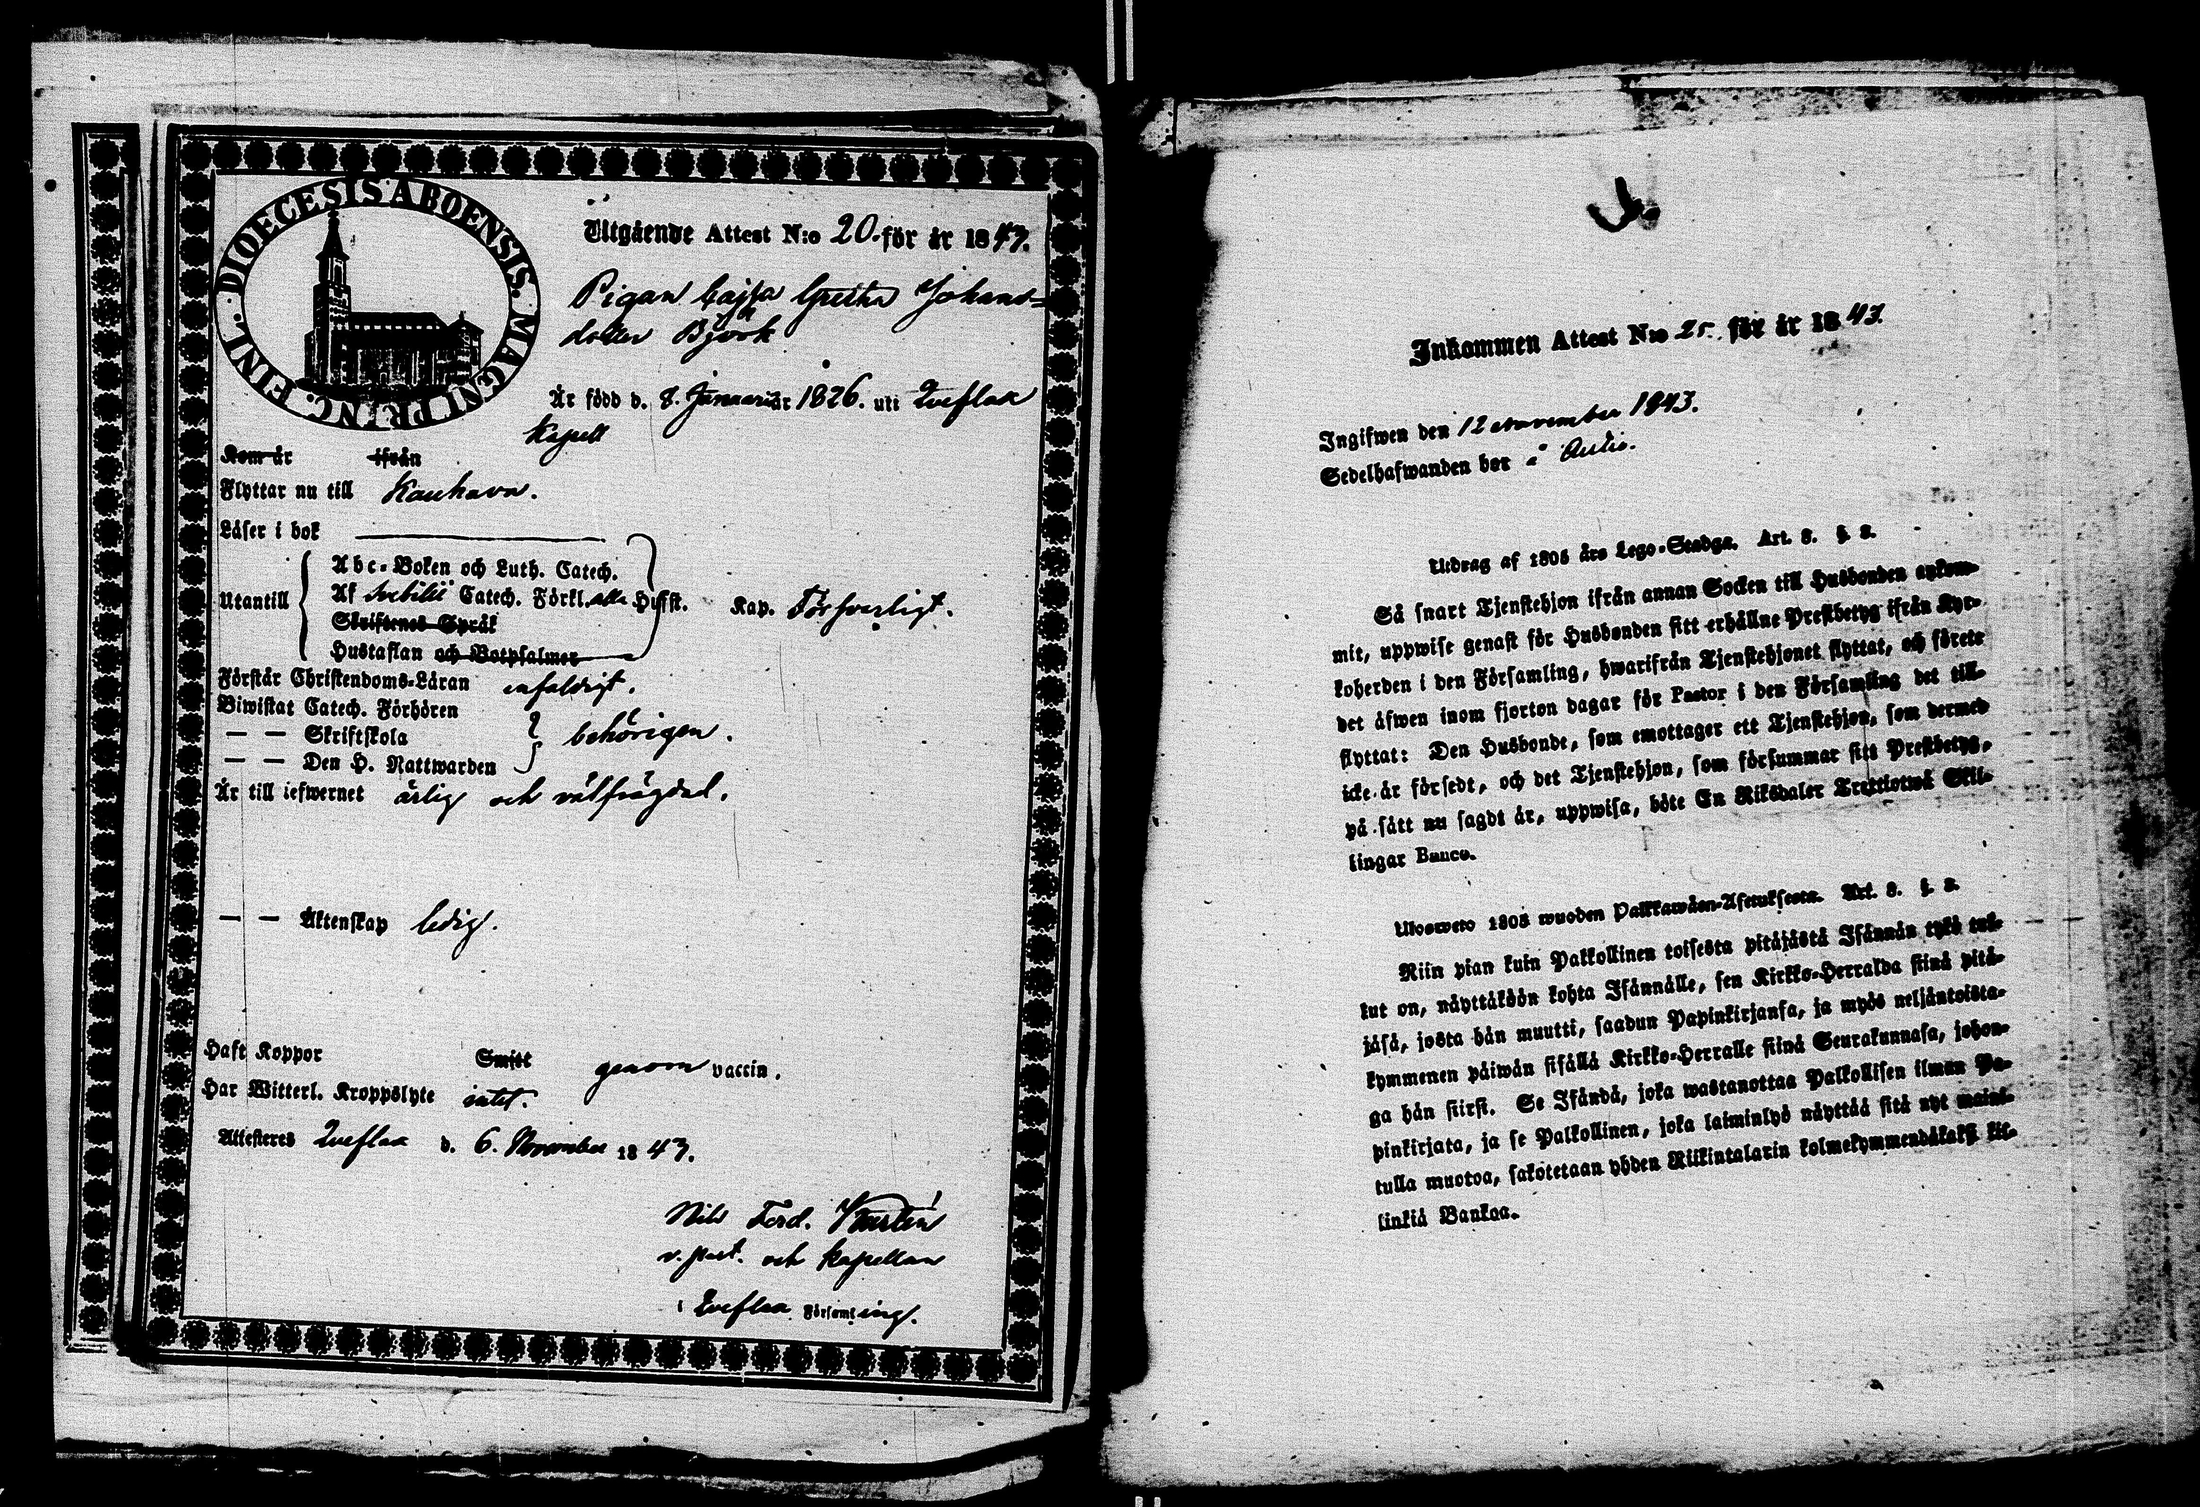 DIOECESIS ABOENSIS. MAGNI PRINC. FINL.
Utgående Attest N:o 20. för år 1843.
Pigan Cajsa Greta Johans-
dotter Björk
Är född d. 8. Januarii år 1826. uti Qveflax
Kapell
Kom år ifrån
Flyttar nu till Kauhava.
Läser i bok
Utantill
Abc-Boken och Luth. Catech.
Af Svebilii Catech. Förkl. alla Hufst. Kap. Försvarligt.
Skriftenes Språk
Hustaflan och Botpsalmer
Förstår Christendoms-Läran enfaldigt.
Biwistat Catech. Förhören
— — Skriftskola behörigen.
— — Den H. Nattwarden
Är till lefwernet ärlig och välfrägdad.
— — Äktenskap ledig.
Haft Koppor Smitt genom vaccin.
Har Witterl. Kroppslyte intet.
Attesteras Qveflax d. 6. November 1843.
Nils Ferd.
v. past. och Kapellan
i Qveflax Församling.
Inkommen Attest N:o 25. för år 1843.
Ingifwen den 12 November 1843.
Sedelhafwanden bor i
Utdrag af 1805 års Lego-Stadga. Art. 8. §. 2.
Så snart Tjenstehjon ifrån annan Socken till Husbonden ankom-
mit, uppwise genast för Husbonden sitt erhållne Prestbetyg ifrån Kyr-
koherden i den Församling, hwarifrån Tjenstehjonet flyttat, och förete
det äfwen inom fjorton dagar för Pastor i den Församling det till-
flyttat: Den Husbonde, som emottager ett Tjenstehjon, som dermed
icke är försedt, och det Tjenstehjon, som försummar sitt Prestbetyg,
på sätt nu sagdt är, uppwisa, böte En Riksdaler Trettiotwå Skil-
lingar Banco.
Ulosweto 1805 wuoden Palkkawäen-Asetuksesta. Art. 8. §. 2.
Niin pian kuin Palkollinen toisesta pitäjästä Isännän tykö tul-
lut on, näyttäköön kohta Isännälle, sen Kirkko-Herralda siinä pitä-
jäsä, josta hän muutti, saadun Papinkirjansa, ja myös neljäntoista-
kymmenen päiwän sisällä Kirkko-Herralle siinä Seurakunnasa, johon-
ga hän siirsi. Se Isändä, joka wastanottaa Palkollisen ilman Pa-
pinkirjata, ja se Palkollinen, joka laiminlyö näyttää sitä nyt maini-
tulla muotoa, sakotetaan yhden Riikintalarin kolmekymmendäkaksi kil-
linkiä Bankoa.